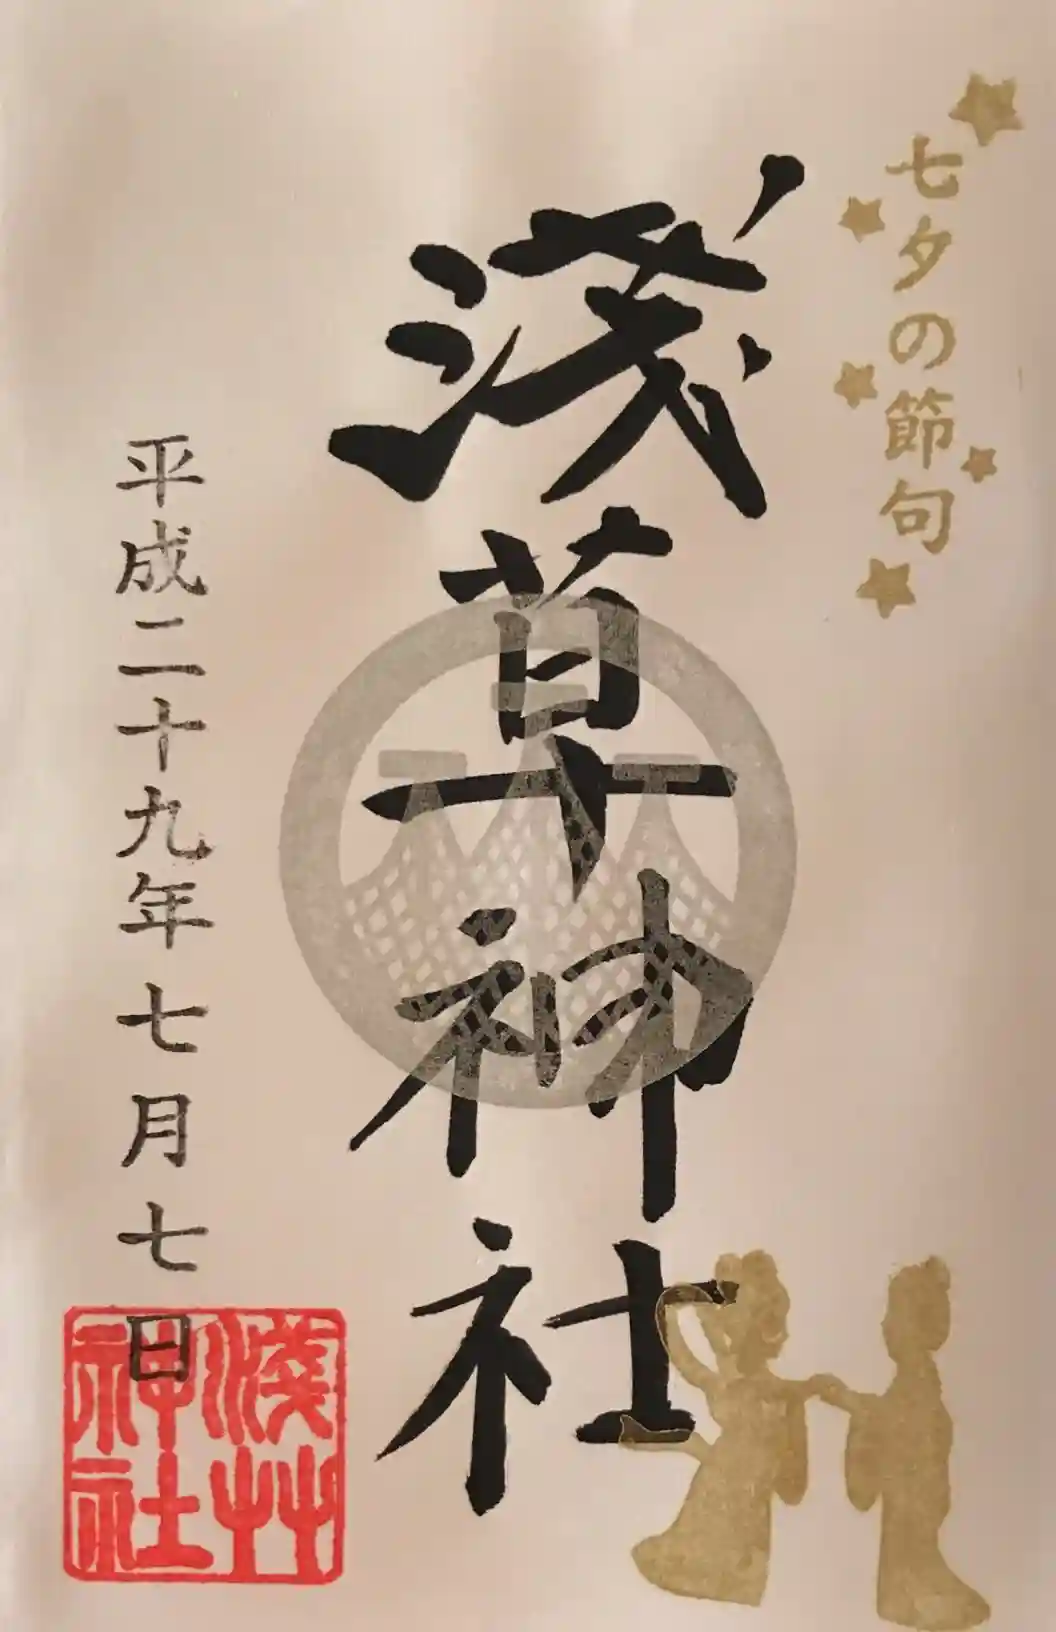 七夕の節句
浅草神社
平成二十九年七月七日
淺艸
神社